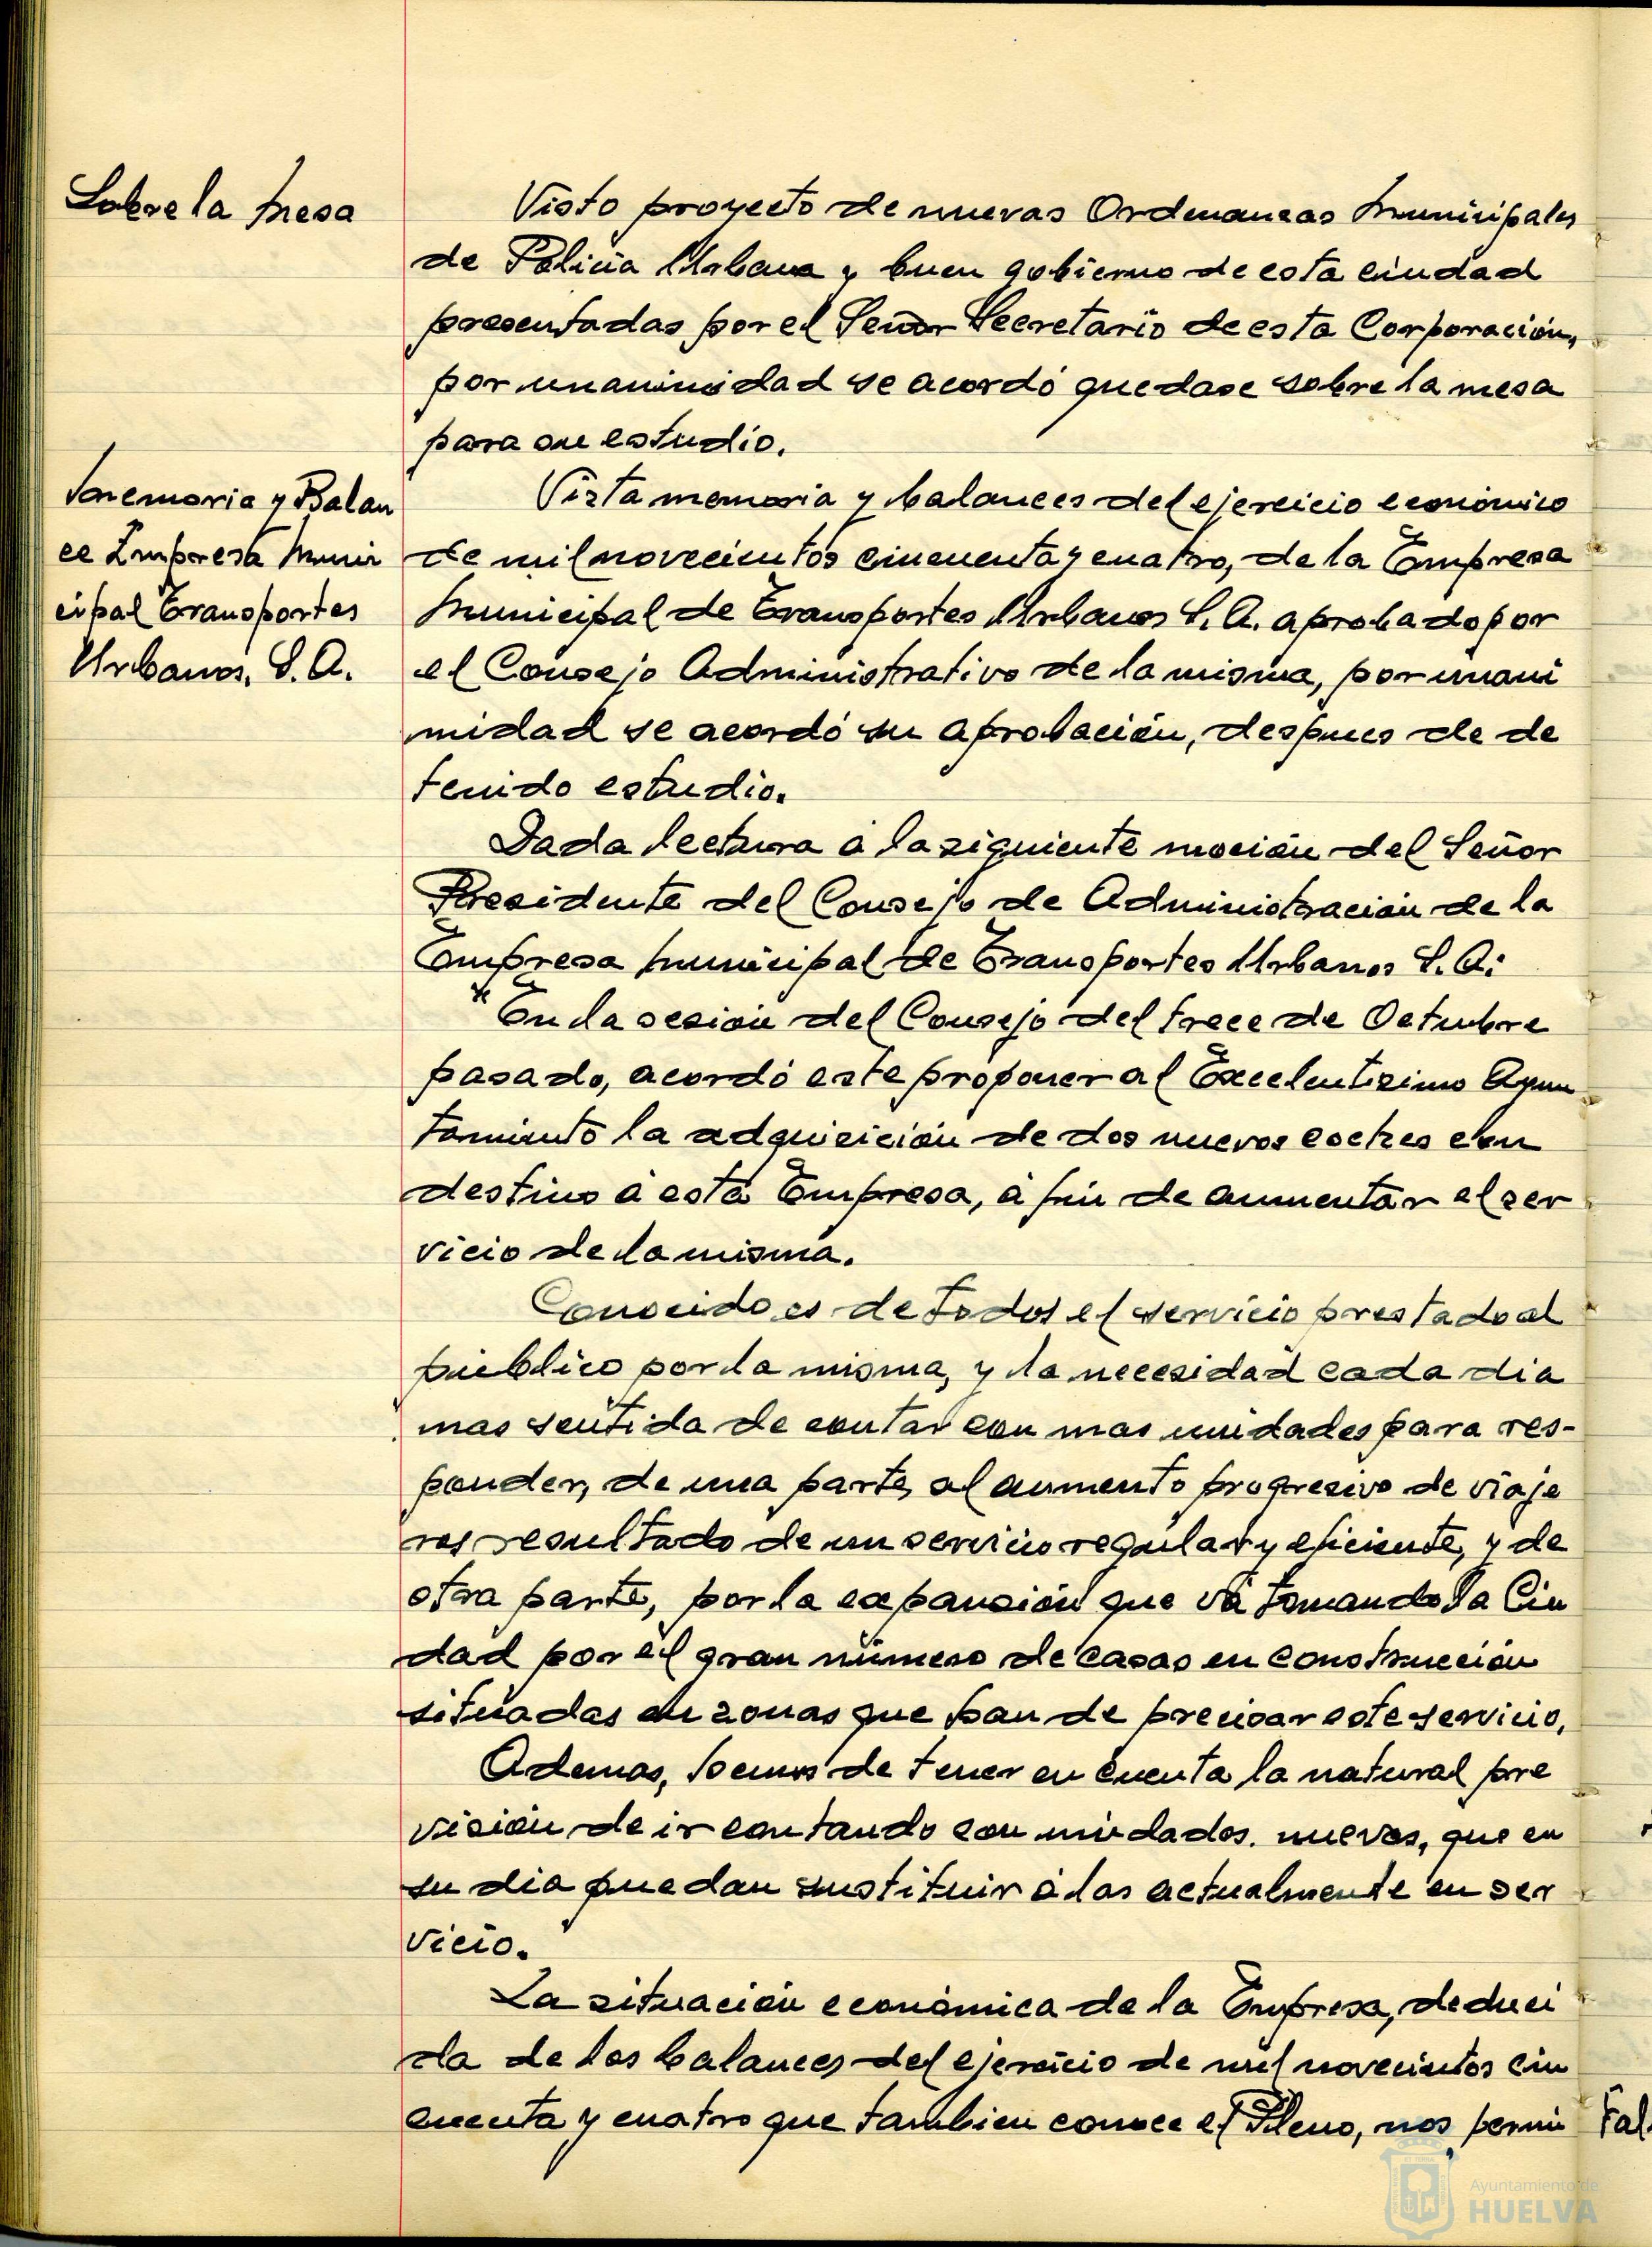 Sobre la mesa
Visto proyecto de nuevas Ordenanzas Municipales
de Policia Urbana y buen gobierno de esta ciudad
presentadas por el Señor Secretario de esta Corporación,
por unanimidad se acordó quedase sobre la mesa
para su estudio.
Memoria y Balan
ce Empresa Muni
cipal Transportes
Urbanos, S.A.
Vista memoria y balances del ejercicio económico
de mil novecientos cincuenta y cuatro, de la Empresa
Municipal de Transportes Urbanos S.A. aprobado por
el Consejo Administrativo de la misma, por unani
midad se acordó su aprobación, despues de de
tenido estudio.
Dada lectura a la siguiente moción del Señor
Presidente del Consejo de Administración de la
Empresa Municipal de Transportes Urbanos S.A:
"En la sesión del Consejo del trece de Octubre
pasado, acordó este proponer al Excelentisimo Ayun
tamiento la adquisición de dos nuevos coches con
destino á esta Empresa, á fin de aumentar el ser
vicio de la misma.
Conocido es de todos el servicio prestado al
público por la misma, y la necesidad cada dia
mas sentida de contar con mas unidades para res-
ponder, de una parte, al aumento progresivo de viaje
ros resultado de un servicio regular y eficiente, y de
otra parte, por la expansión que vá tomando la Ciu
dad por el gran número de casas en construcción
situadas en zonas que han de precisar este servicio.
Ademas, hemos de tener en cuenta la natural pre
visión de ir contando con unidades nuevas, que en
su dia puedan sustituir á las actualmente en ser
vicio.
La situación económica de la Empresa, deduci
da de los balances del ejercicio de mil novecientos cin
cuenta y cuatro que tambien conoce el Pleno, nos permi
Fal
Ayuntamiento de
HUELVA